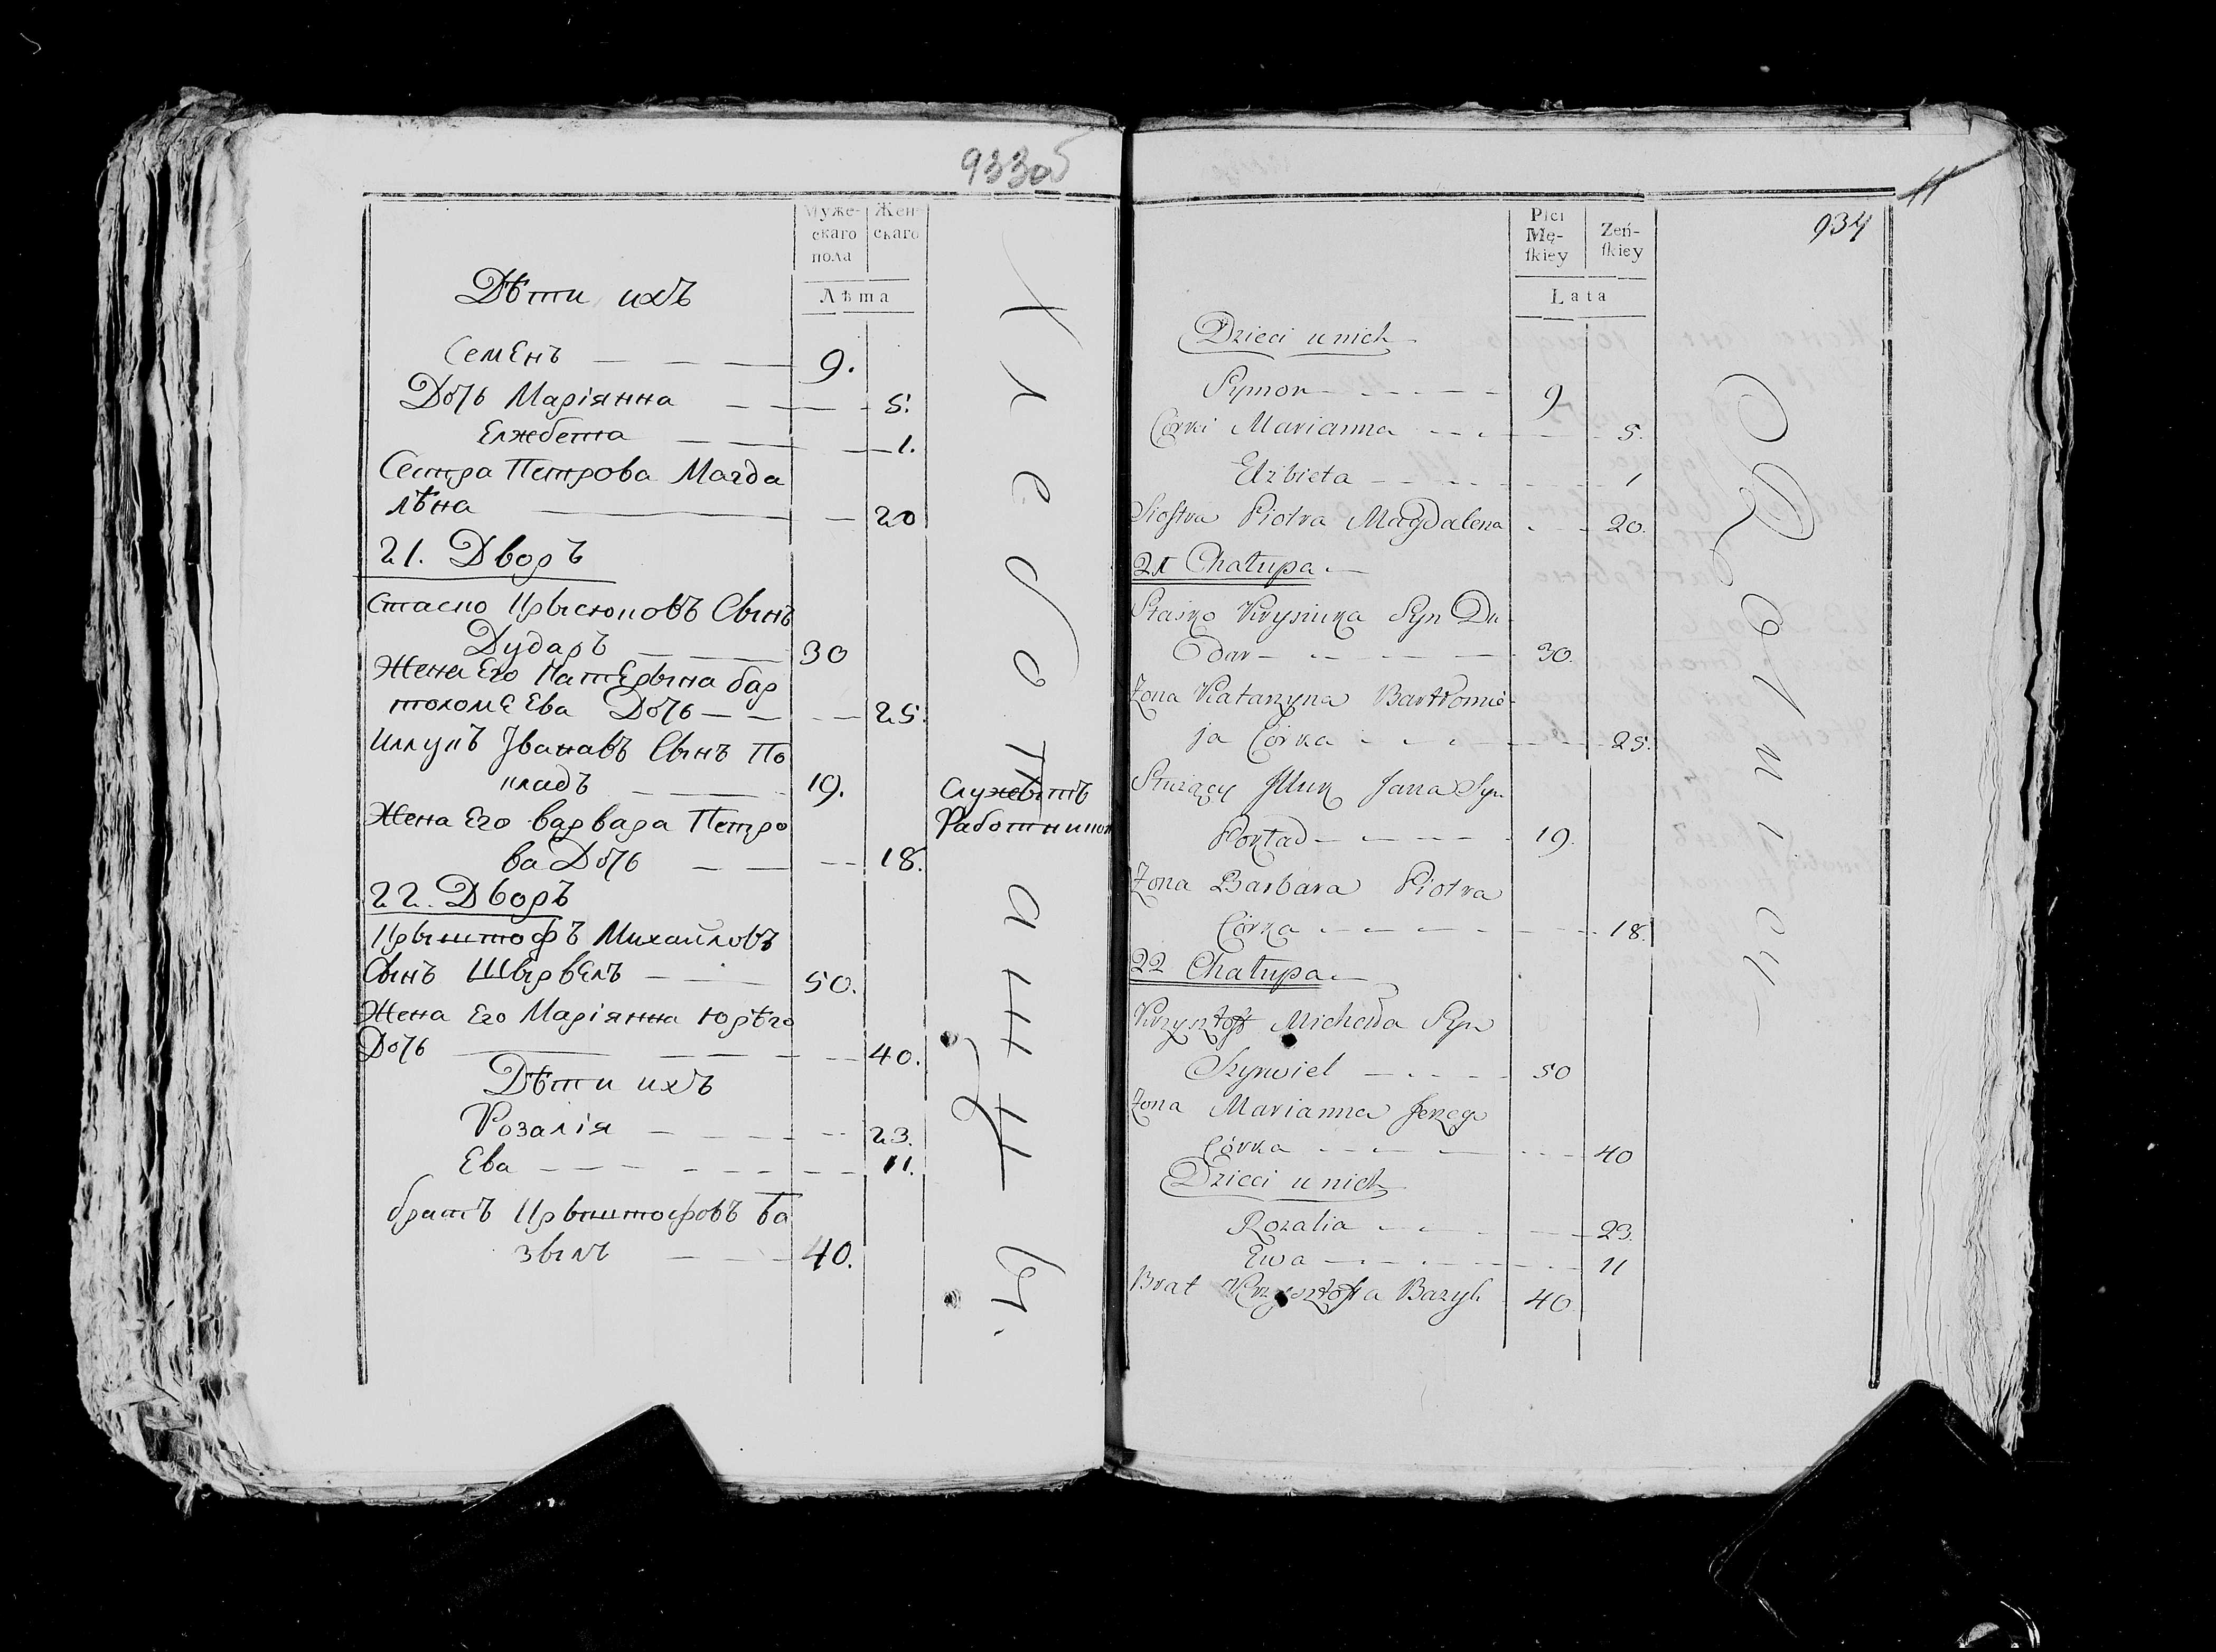 933об
Муже-
скаго
пола
Жен-
скаго
Лѣта
Дѣти ихъ
Семенъ 9.
Дочь Маріянна 5.
Елжбета 1.
Сестра Петрова Магда
лѣна 20
21. Дворъ
Стаско Крысюковъ Сынъ
Дударъ 30
Жена Его Катерына бар
толомеева Дочь 25.
Иллукъ Іванавъ Сынъ По
кладъ 19.
Служытъ
Работником
Жена Его варвара Петро
ва Дочь 18.
22. Дворъ
Крыштофъ Михайловъ
Сынъ Шырвелъ 50.
Жена Его Маріянна Юрѣго
Дочь 40.
Дѣти ихъ
Розалія 23.
Ева 11.
братъ Крыштофовъ ба
зылъ 40.
934
Płci
Mę-
ſkiey
Zeń-
ſkiey
Lata
Dzieci u nich
Symon 9
Corki Marianna 5.
Elzbieta 1
Siostra Piotra Magdalena 20.
21 Chałupa
Stasko Krysiuka Syn Du
dar 30.
Zona Katarzyna Bartłomie
ja Córka 25.
Służący Illuk Jana Syn
Pokład 19.
Zona Barbara Piotra
Córka 18.
22 Chałupa
Krzysztof Michała Syn
Szyrwiel 50
Zona Marianna Jerzego
Córka 40
Dzieci u nich
Rozalia 23.
Ewa 11
Brat Krzysztofa Bazyli 40.